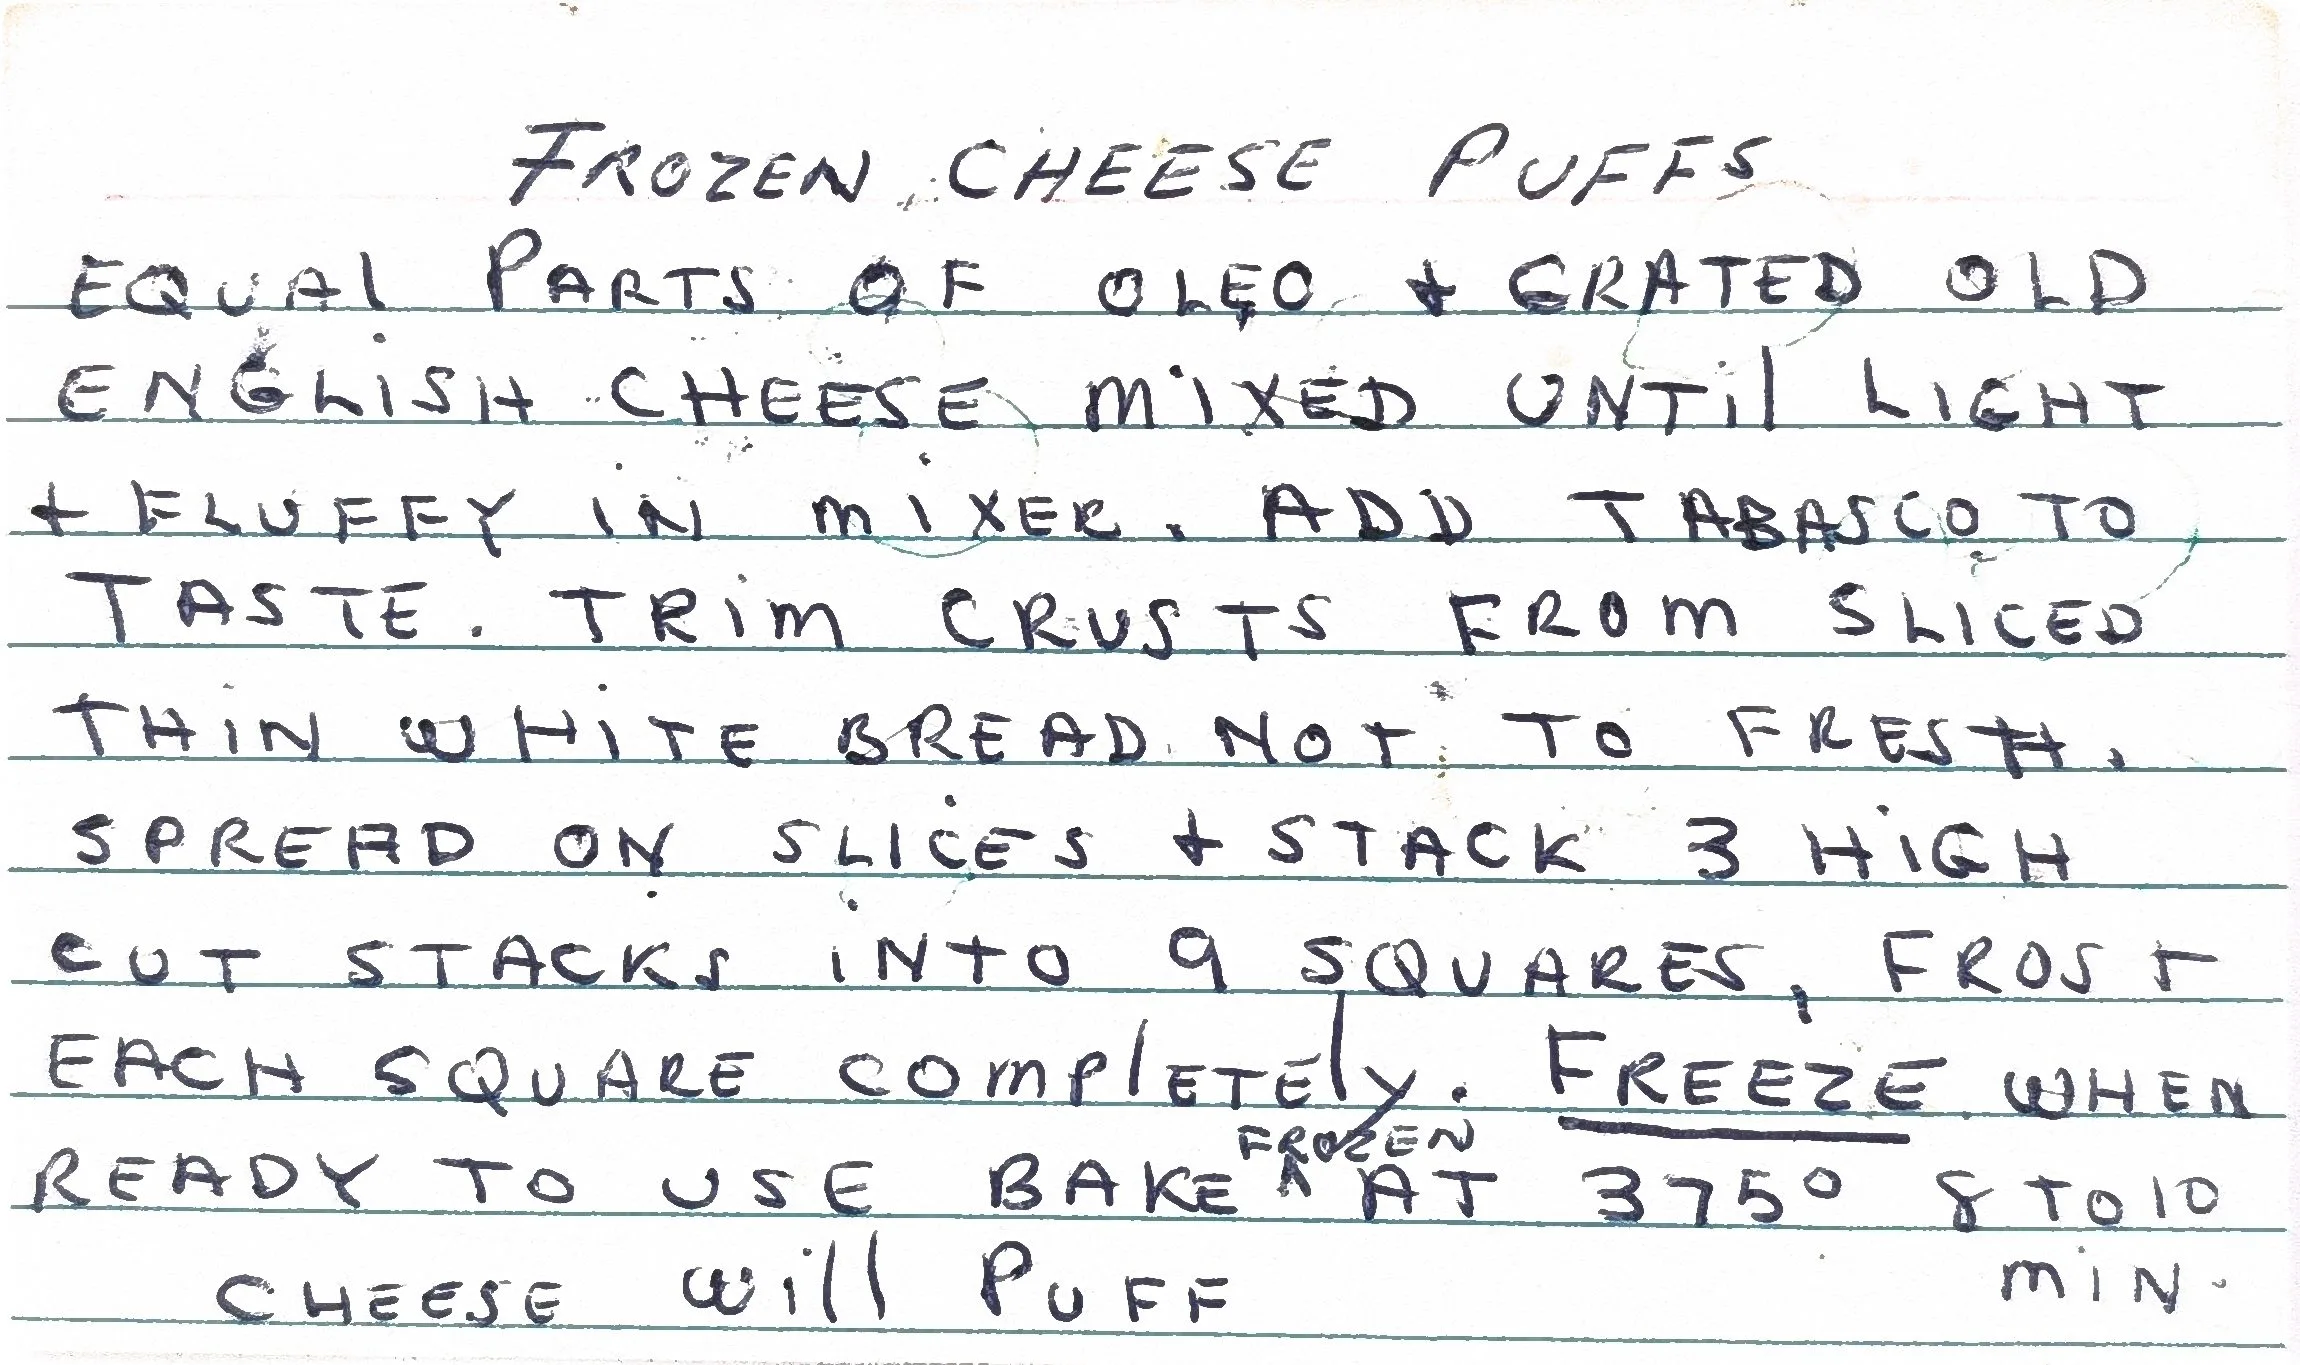 FROZEN CHEESE PUFFS
EQUAl PARTS OF OLEO + GRATED OLD
ENGLISH CHEESE MiXED UNTil LIGHT
+ FLUFFY IN MiXER. ADD TABASCO TO
TASTE. TRiM CRUSTS FROM SLICED
THiN WHiTE BREAD NOT TO FRESH.
SPREAD ON SLICES + STACK 3 HiGH
CUT STACKS iNTO 9 SQUARES, FROST
EACH SQUARE COMPlETEly. FREEZE WHEN
READY TO USE BAKE ^FROZEN AT 375° 8 TO 10
MiN.
CHEESE Will PUFF